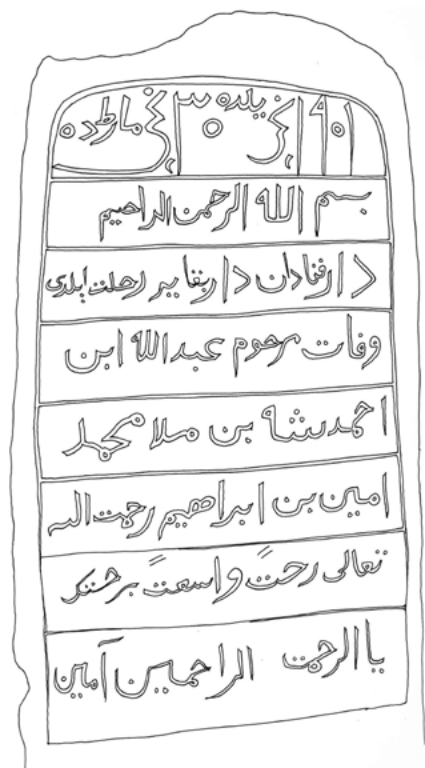 ١٩٠١ نجی یلده ٣٠ نجی مارطده
بسم الله الرحمن الراحیم
دارفنادن داربقایر رحلت ایلدی
وفات مرحوم عبدالله ابن
احمدشاه بن ملا محمد
امین بن ابراهیم رحمت الله
تعالی رحمتً واسعتً برحمتک
یاالرحمت الراحمین آمین